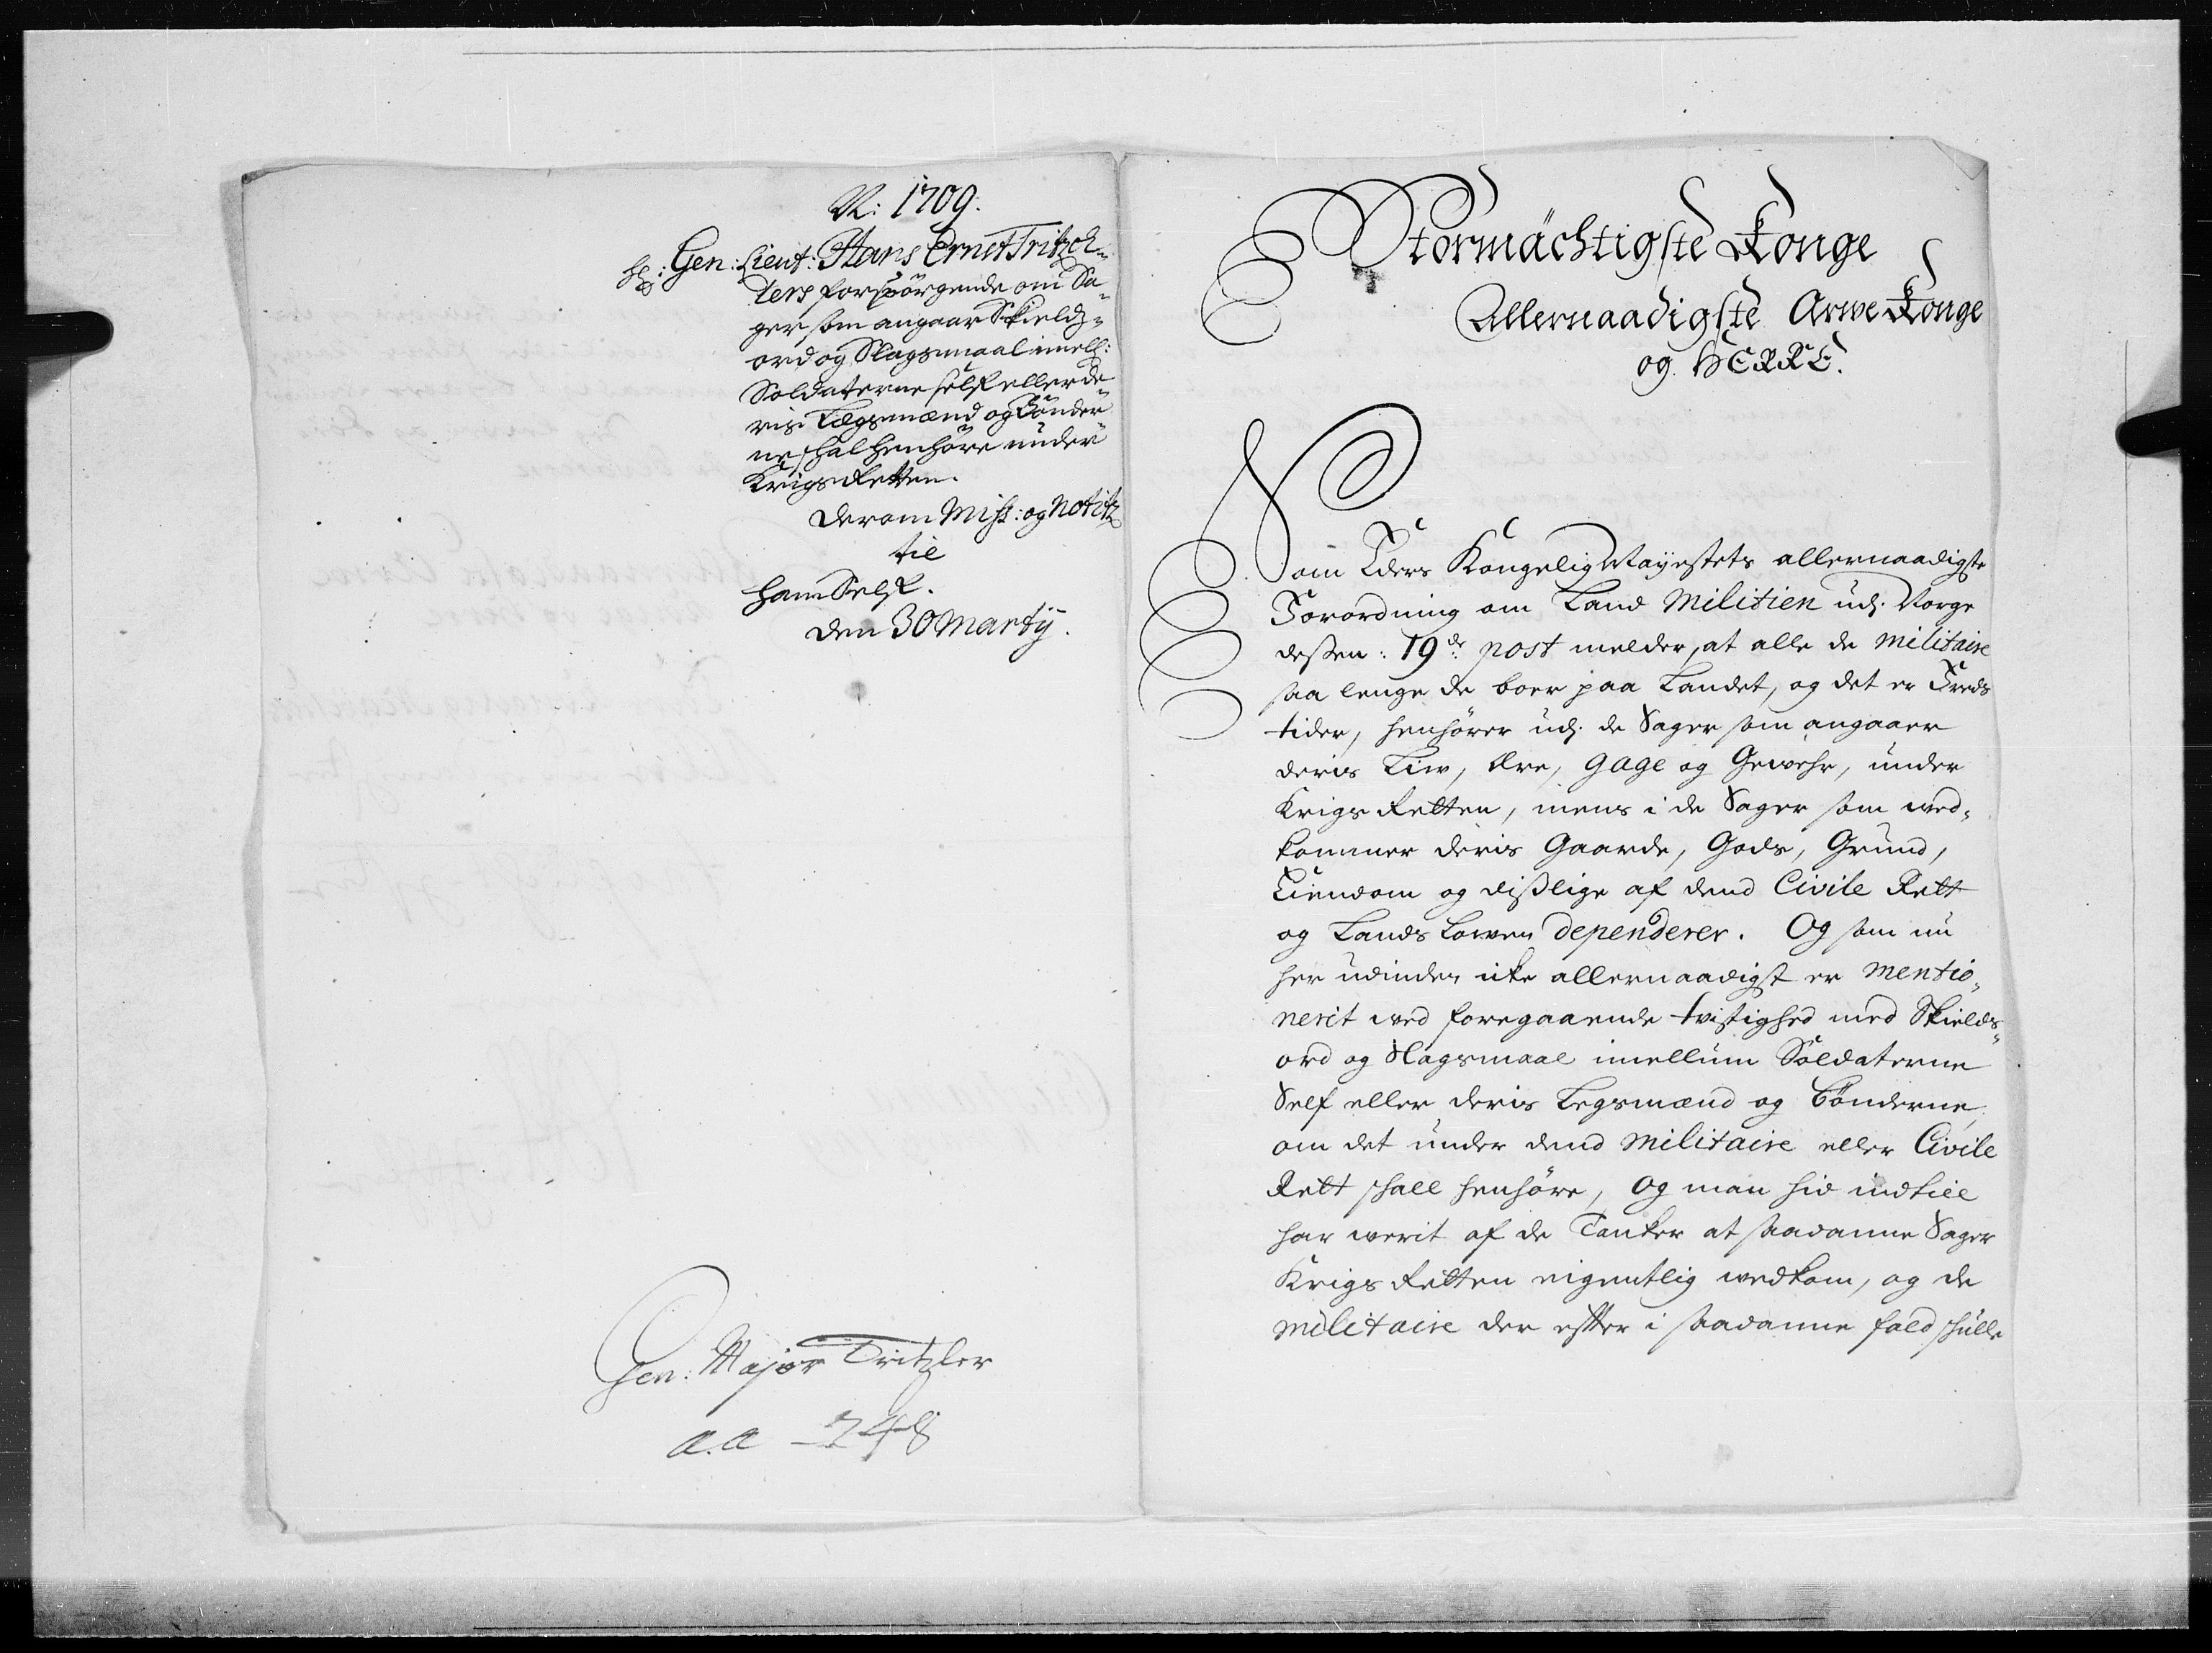 N: 1709.
H: Gen: Lieut: Hans Ernst Tritzch-
lers forspørgende om Sa-
ger som angaar Skields-
ord og Slagsmaal imell:
Soldaterne self eller de-
ris Lægsmænd og Bønder-
ne skal henhøre under
Krigs Retten.
Derom Miss: og Notitz
til
ham Self.
den 30 Martij.
Gen: Major Tritzler
a.a 248
Stormächtigste Konge
Allernaadigste Arwe Konge
og HERRE.
Som Eders Kongelig Mayestets allernaadigste
Forordning om Land Militien udj Norge
dessen: 19de post melder, at alle de militaire
saa lenge de boer paa Landet, og det er Freds
tider, henhører udj de Sager som angaaer
deris Liv, Ære, gage og Gewehr, under
Krigs Retten, mens i de Sager som wed-
kommer deris Gaarde, Gods, Grund,
Eiendom og dislige af dend Civile Rett
og Lands Lowen dependerer. Og som nu
her udinden icke allernaadigst er mentio-
nerit wed foregaaende tvistighed med Skields-
ord og Slagsmaal imellum Soldaterne
Self eller deris Legsmænd og Bønderne,
om det under dend militaire eller Civile
Rett skall henhøre, og man hid indtill
har werit af de Tanker at saadanne Sager
Krigs Retten eigentlig wedkom, og de
militaire der efter i saadanne fald skulle